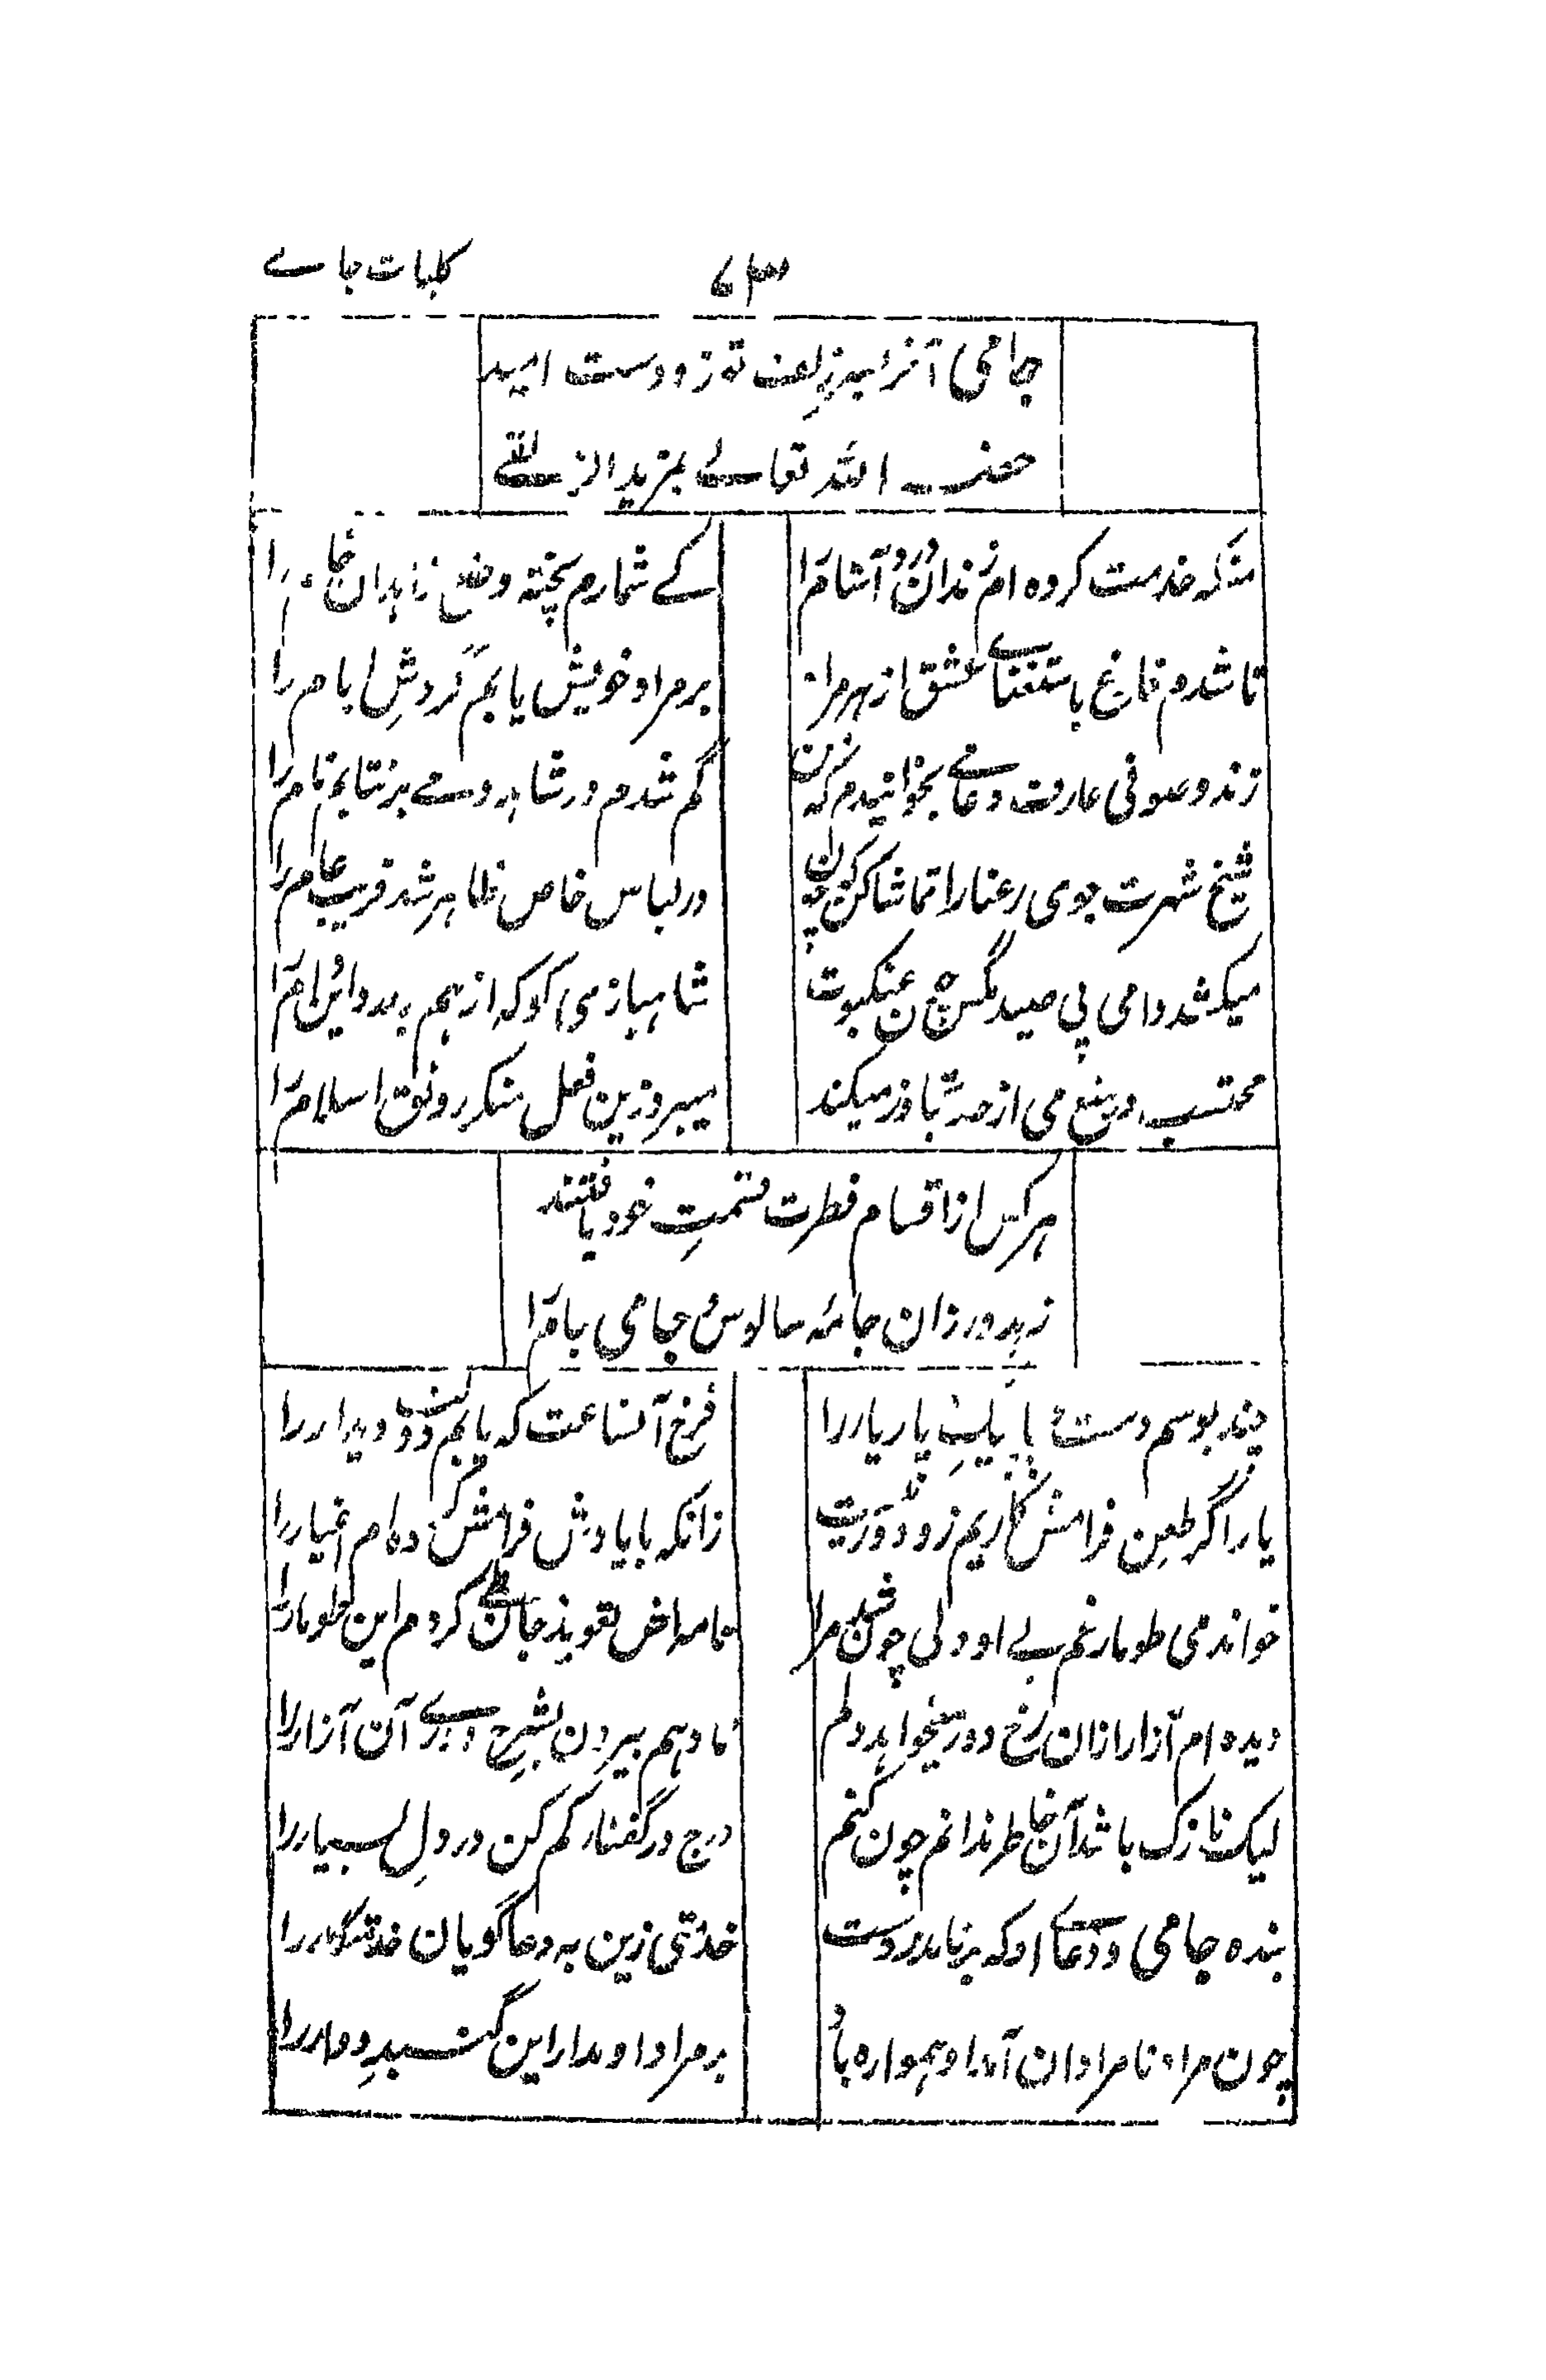 کلیات جامے
۷۳
جامی آنرا بہ زلف تو زد دست امید
خصہ اللہ تعالے بمزید الزلفے
منکہ خدمت کردہ ام رندان دُرد آشام را
کے شمارم پختہ وضع زاہدان خام را
تا شدم فارغ باستغناے عشق از ہر مراد
بر مراد خویش یابم گردشِ ایام را
رند و صوفی عارف و عامے بخوانیدم کہ من
گم شدم در شاہد و مے برنتابم نام را
شیخ شہرت جوی رعنا را تماشا کن کہ چون
در لباس خاص ظاہر شد فریب عام را
میکشد دامی پی صید مگس چون عنکبوت
شاہبازی کو کہ از ہم بر درد این دام را
محتسب در منع می از حد تجاوز میکند
میبرد زین فعل منکر رونق اسلام را
ہر کس از اقسام فطرت قسمتِ خود یافتند
زہد ورزان جامۂ سالوس و جامی جام را
چند بوسم دست و پا پیکِ یار را
فرخ آنساعت کہ یابم دولت دیدار را
یار اگر طعنِ فرامش کاریم زد دور نیست
زانکہ با یادش فرامش کردہ ام اغیار را
خواندمی طومار غم بے او ولی چون شد مرا
نامہ اش تعویذ جان طے کردم این طومار را
دیدہ ام آزار ازان رخ دور میخواہد دلم
تا دہم بیرون بشرح دوری آن آزار را
لیک نازک باشد آن خاطر ندانم چون کنم
درج در گفتار کم کن دردِ دل بسیار را
بندہ جامی و دعاے او کہ برناید ز دست
خدمتی زین بہ دعا گویان خدمتگار را
چون مراد نامرادان آمد او ہموارہ باد
بر مراد او مدار این گنبدِ دوار را